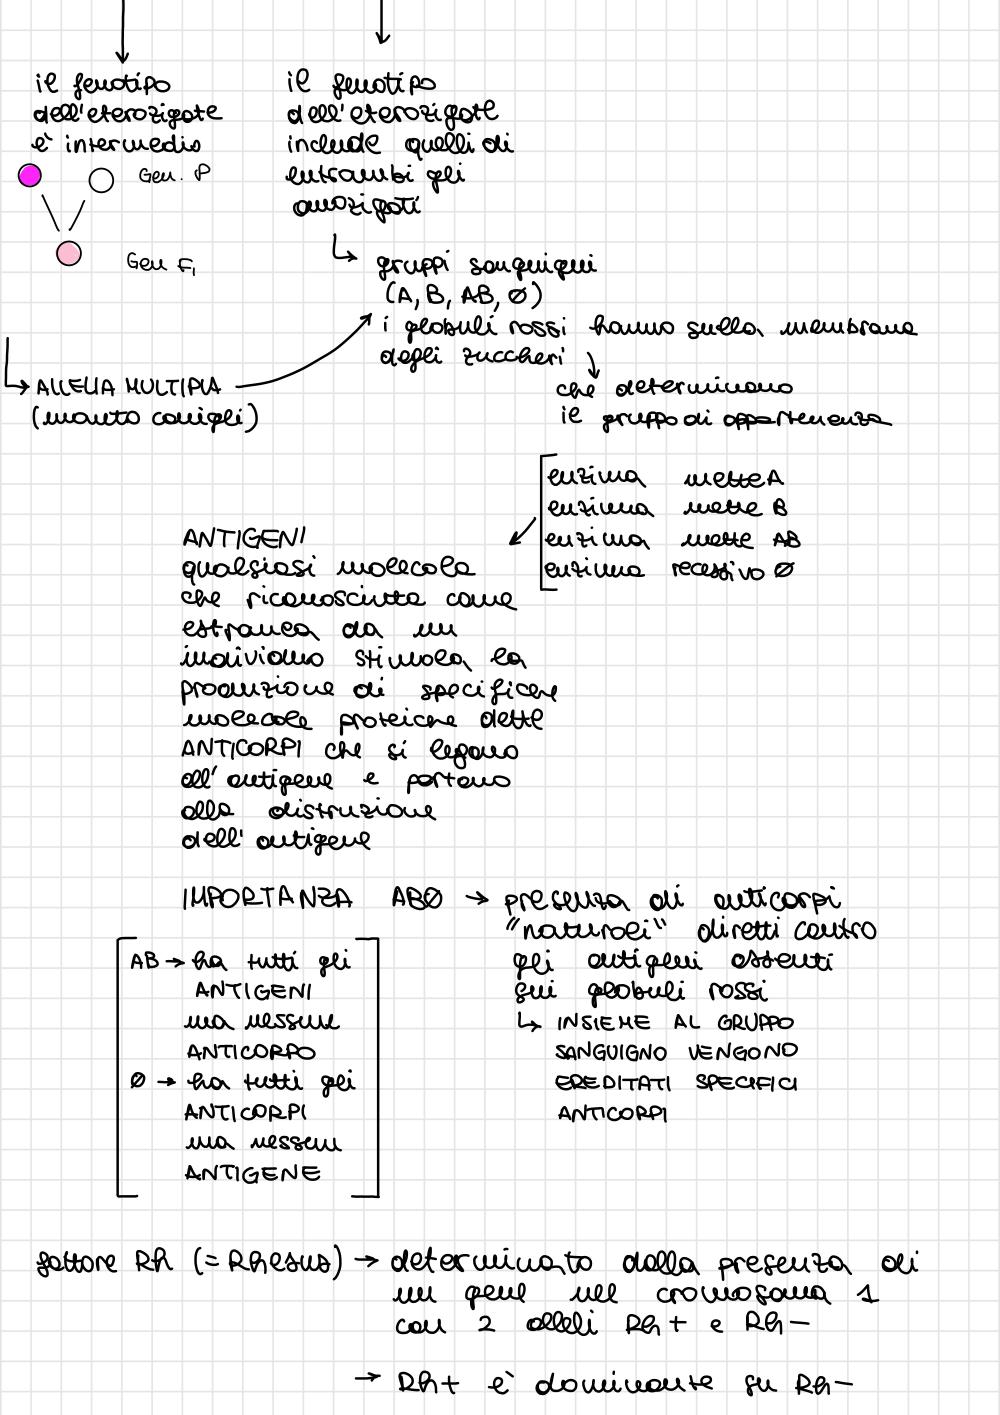 il fenotipo
dell'eterozigote
è intermedio
Gen. P
Gen F1
il fenotipo
dell'eterozigote
include quelli di
entrambi gli
omozigoti
gruppi sanguigni
(A, B, AB, Ø)
i globuli rossi hanno sulla membrana
degli zuccheri
che determinano
il gruppo di appartenenza
ALLELIA MULTIPLA
(manto conigli)
enzima mette A
enzima mette B
enzima mette AB
enzima recessivo Ø
ANTIGENI
qualsiasi molecola
che riconosciuta come
estranea da un
individuo stimola la
produzione di specifiche
molecole proteiche dette
ANTICORPI che si legano
all'antigene e portano
alla distruzione
dell'antigene
IMPORTANZA ABØ → presenza di anticorpi
"naturali" diretti contro
gli antigeni assenti
sui globuli rossi
↳ INSIEME AL GRUPPO
SANGUIGNO VENGONO
EREDITATI SPECIFICI
ANTICORPI
AB → ha tutti gli
ANTIGENI
ma nessun
ANTICORPO
Ø → ha tutti gli
ANTICORPI
ma nessun
ANTIGENE
fattore Rh (= Rhesus) → determinato dalla presenza di
un gene nel cromosoma 1
con 2 alleli Rh+ e Rh-
→ Rh+ è dominante su Rh-